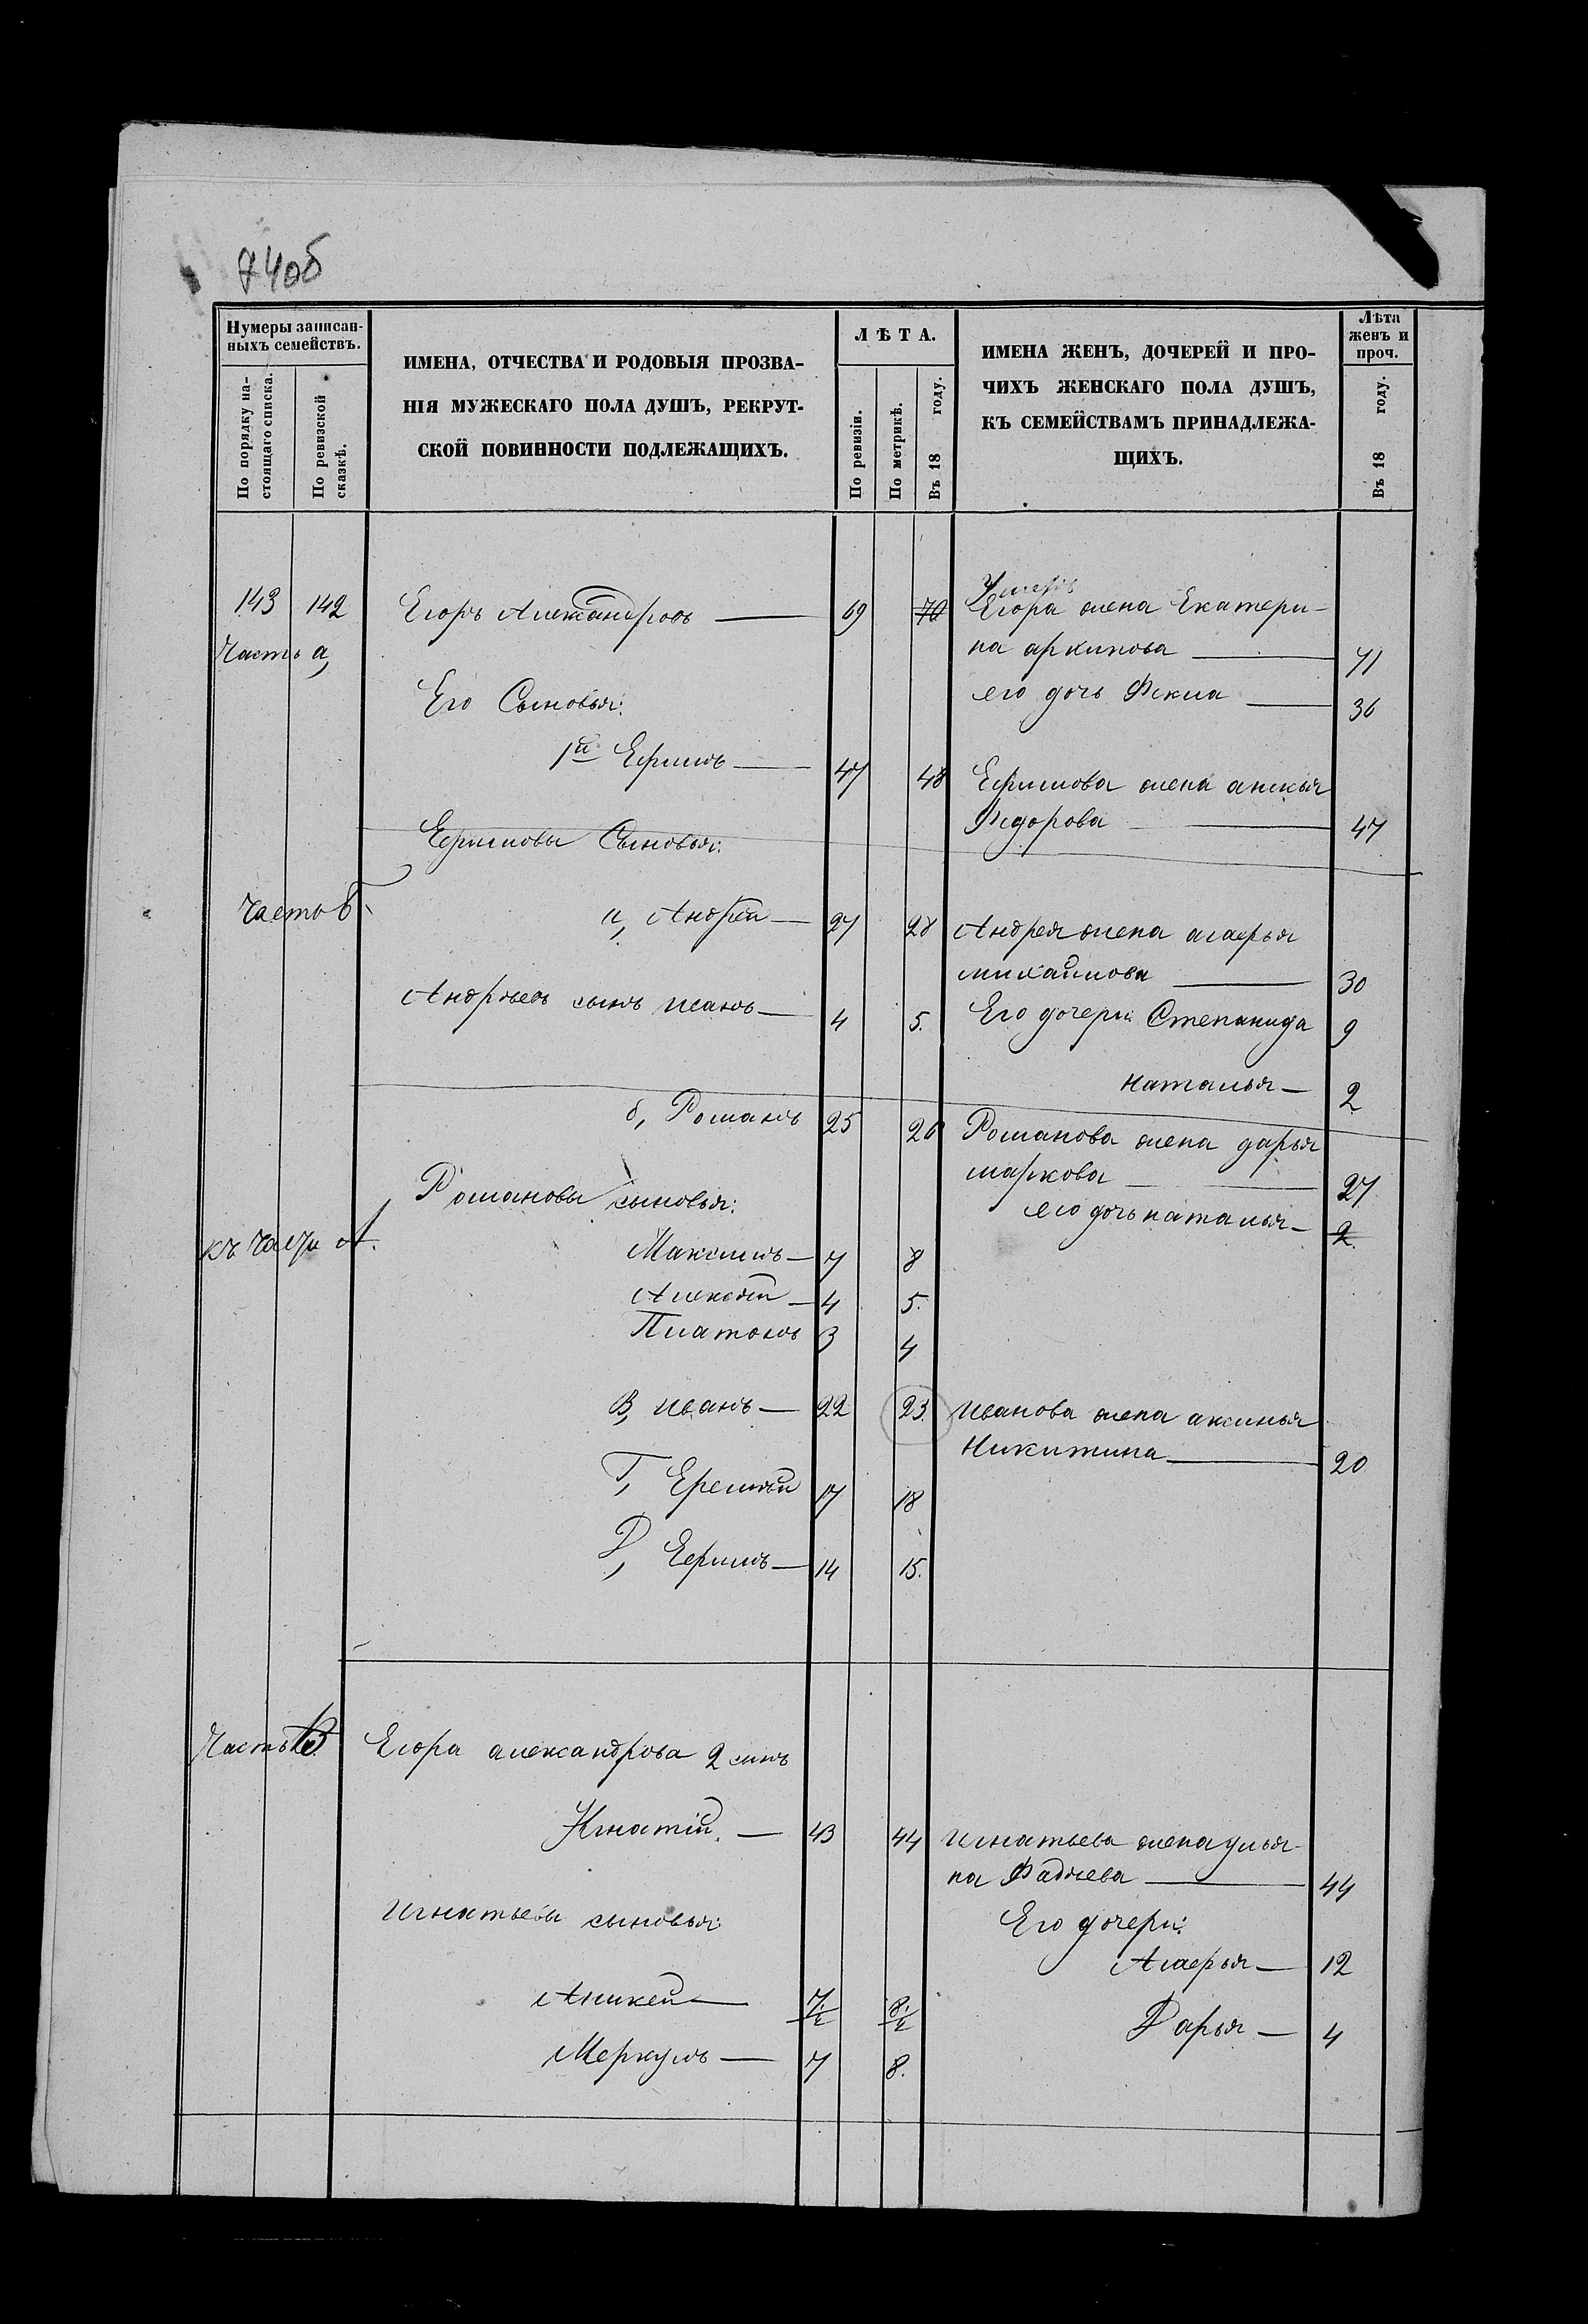 74об
Нумеры записан-
ныхъ семействъ.
По порядку на-
стоящаго списка.
По ревизской
сказкѣ.
ИМЕНА, ОТЧЕСТВА И РОДОВЫЯ ПРОЗВА-
НІЯ МУЖЕСКАГО ПОЛА ДУШЪ, РЕКРУТ-
СКОЙ ПОВИННОСТИ ПОДЛЕЖАЩИХЪ.
ЛѢТА.
По ревизіи.
По метрикѣ.
Въ 18 году.
ИМЕНА ЖЕНЪ, ДОЧЕРЕЙ И ПРО-
ЧИХЪ ЖЕНСКАГО ПОЛА ДУШЪ,
КЪ СЕМЕЙСТВАМЪ ПРИНАДЛЕЖА-
ЩИХЪ.
Лѣта
женъ и
проч.
Въ 18 году.
Умеръ
143 142 Егоръ Александровъ — 69 70 Егора жена Екатери-
Часть а, на архипова — 71
Его Сыновья: его дочь Фекла — 36
1й Ефимъ — 47 48 Ефимова жена анисья
Федорова — 47
Ефимовы Сыновья:
Часть б а, Андрей — 27 28 Андрея жена агафья
михайлова — 30
Андреевъ сынъ исакъ — 4 5. Его дочери Степанида 9
наталья — 2
б, Романъ 25 26 Романова жена дарья
маркова — 27
Романовы сыновья: его дочь наталья — 2.
къ части А. Максимъ — 7 8
Алексѣй — 4 5.
Платонъ 3 4
В, иванъ — 22 23. Иванова жена аксинья
Никитина — 20
Г, Еремѣй 17 18
Д, Ефимъ — 14 15.
Часть В Егора александрова 2 сынъ
Игнатій. — 43 44 Игнатьева жена улья-
на Фадѣева — 44
Игнатьевы сыновья: Его дочери:
Агафья — 12
Аникей — 7 1/2 8 1/2
Дарья — 4
Меркулъ — 7 8.